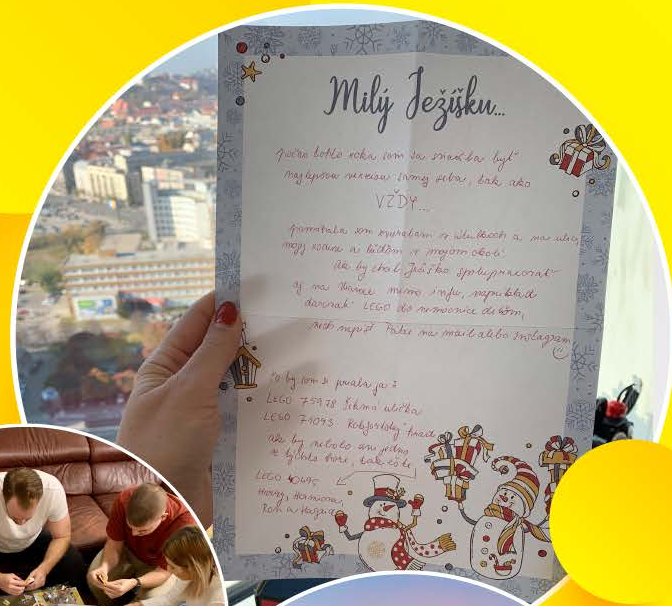 Milý Ježíšku...
počas tohto roka som sa snažila byť
najlepšou verziou samej seba, tak ako
VŽDY...
pomáhala som zvieratám v útulkoch a na ulici,
mojej rodine a ľuďom v mojom okolí.
Ak by chcel Ježiško spolupracovať
aj na Vianoce mimo info, napríklad
darovať LEGO do nemocnice deťom,
nech napíše Paľke na mail alebo instagram
Čo by som si priala ja?
LEGO 75978 Šikmá ulička
LEGO 71043 Rokfortský hrad
ak by nebolo ani jedno
z týchto hore, tak ešte
LEGO 40495
Harry, Hermiona,
Ron a Hagrid